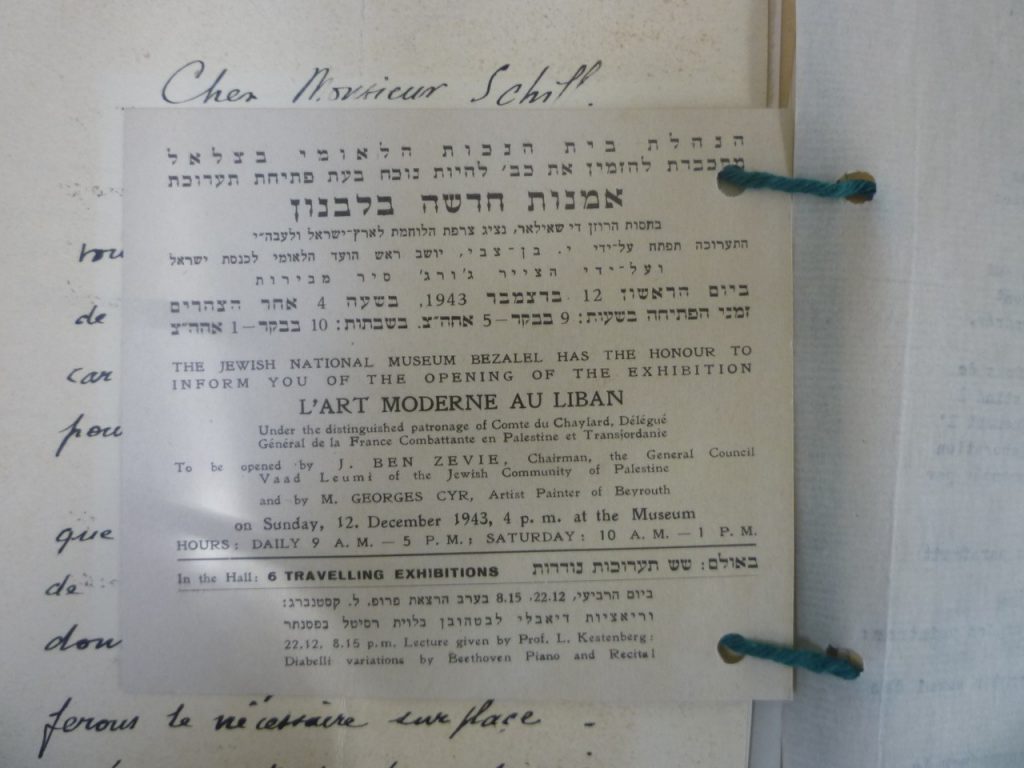 Cher Monsieur Schiff.
הנהלת בית הנכות הלאומי בצלאל
מתכבדת להזמין את כב׳ להיות נוכח בעת פתיחת תערוכת
אמנות חדשה בלבנון
בחסות הרוזן די שאילאר, נציג צרפת הלוחמת לארץ־ישראל ולעבה״י
התערוכה תפתח על־ידי י. בן־צבי, יושב ראש הועד הלאומי לכנסת ישראל
ועל־ידי הצייר ג׳ורג׳ סיר מבירות
ביום הראשון 12 בדצמבר 1943, בשעה 4 אחר הצהרים
זמני הפתיחה בשעות: 9 בבקר—5 אחה״צ. בשבתות: 10 בבקר—1 אחה״צ
THE JEWISH NATIONAL MUSEUM BEZALEL HAS THE HONOUR TO
INFORM YOU OF THE OPENING OF THE EXHIBITION
L'ART MODERNE AU LIBAN
Under the distinguished patronage of Comte du Chaylard, Délégué
Général de la France Combattante en Palestine et Transjordanie
To be opened by J. BEN ZEVIE, Chairman, the General Council
Vaad Leumi of the Jewish Community of Palestine
and by M. GEORGES CYR, Artist Painter of Beyrouth
on Sunday, 12. December 1943, 4 p. m. at the Museum
HOURS: DAILY 9 A. M. — 5 P. M.; SATURDAY: 10 A. M. — 1 P. M.
In the Hall: 6 TRAVELLING EXHIBITIONS באולם: שש תערוכות נודדות
ביום הרביעי, 22.12, 8.15 בערב הרצאת פרופ. ל. קסטנברג:
וריאציות דיאבלי לבטהובן בלוית רסיטל בפסנתר
22.12, 8.15 p.m. Lecture given by Prof. L. Kestenberg:
Diabelli variations by Beethoven Piano and Recital
de
car
que
de
ferons le nécessaire sur place -